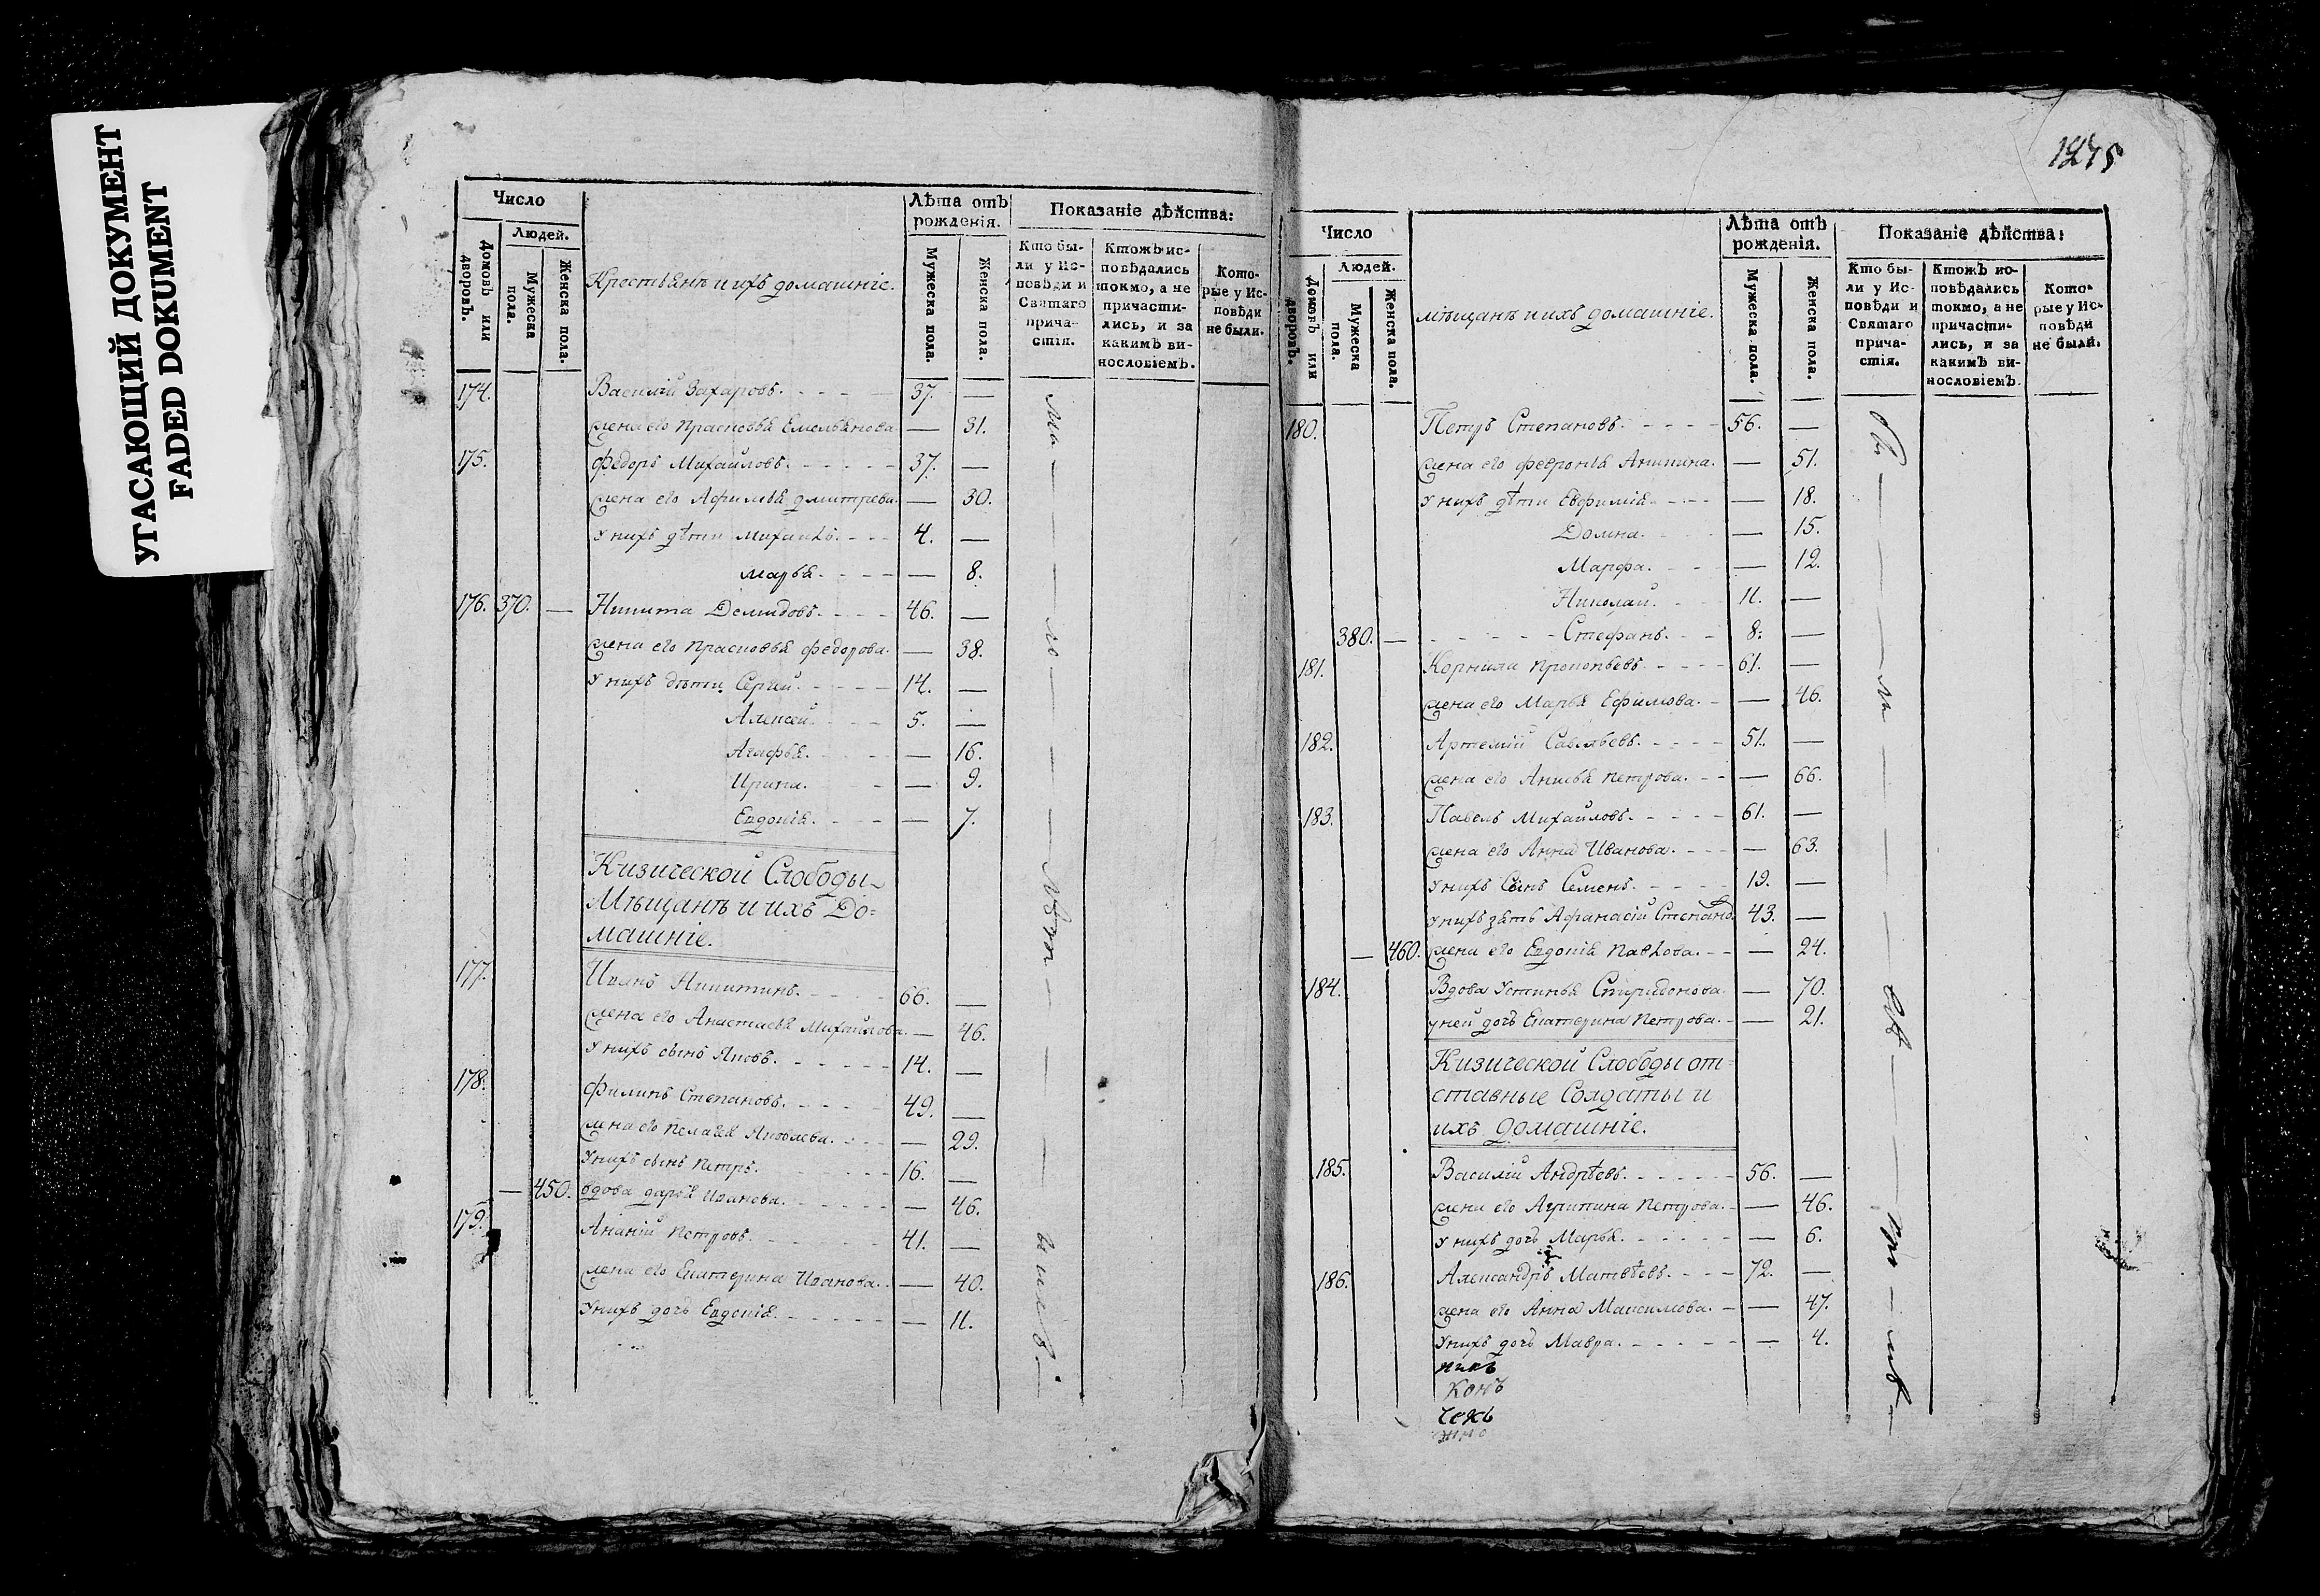 УГАСАЮЩИЙ ДОКУМЕНТ
FADED DOKUMENT
Число
Людей.
Домовъ или дворовъ.
Мужеска пола.
Женска пола.
Крестьянъ и ихъ домашніе.
Лѣта отъ рожденія.
Мужеска пола.
Женска пола.
Показаніе дѣйства:
Кто бы-
ли у Ис-
повѣди и
Святаго
прича-
стія.
Ктожъ ис-
повѣдались
токмо, а не
причасти-
лись, и за
какимъ ви-
нословіемъ.
Кото-
рые у Ис-
повѣди
не были.
174. Василій Захаровъ. 37. —
жена его Прасковья Емельянова — 31.
175. Федоръ Михайловъ. 37. —
жена его Афимья Дмитрева. — 30.
У нихъ дѣти Михаилъ. 4. —
Марья. — 8.
176. 370. — Никита Демидовъ. 46. —
жена его Прасковья Федорова. — 38.
У нихъ дѣти Сергей. 14. —
Алексей. 5. —
Агафья. — 16.
Ирина. — 9.
Евдокія. — 7.
Кизической Слободы
Мѣщанъ и ихъ До=
машніе.
177. Иванъ Никитинъ. 66. —
жена его Анастасья Михайлова. — 46.
У нихъ сынъ Яковъ. 14. —
178. Филипъ Степановъ. 49. —
жена его Пелагея Яковлева. — 29.
У нихъ сынъ Петръ. 16. —
— 450. вдова Дарья Иванова. — 46.
179. Ананій Петровъ. 41. —
жена его Екатерина Иванова. — 40.
У нихъ дочь Евдокія. — 11.
1275
Число
Людей.
Домовъ или дворовъ.
Мужеска пола.
Женска пола.
мѣщанъ и ихъ домашніе.
Лѣта отъ рожденія.
Мужеска пола.
Женска пола.
Показаніе дѣйства:
Кто бы-
ли у Ис-
повѣди и
Святаго
прича-
стія.
Ктожъ ис-
повѣдались
токмо, а не
причасти-
лись, и за
какимъ ви-
нословіемъ.
Кото-
рые у Ис-
повѣди
не были.
180. Петръ Степановъ. 56. —
жена его Февронія Аникина. — 51.
У нихъ дѣти Евфимія. — 18.
Домна. — 15.
Марфа. — 12.
Николай. 11. —
380. — Стефанъ. 8. —
181. Корнила Прокопьевъ. 61. —
жена его Марья Ефимова. — 46.
182. Артемій Савельевъ. 51. —
жена его Анисья Петрова. — 66.
183. Павелъ Михайловъ. 61. —
жена его Анна Иванова. — 63.
У нихъ Сынъ Семенъ. 19. —
У нихъ зять Афанасій Степанов 43. —
— 460. жена его Евдокія Павлова. — 24.
184. Вдова Устинья Спиридонова — 70.
у ней дочь Екатерина Петрова. — 21.
Кизической Слободы от=
ставные Солдаты и
ихъ домашніе.
185. Василій Андрѣевъ. 56. —
жена его Агрипина Петрова. — 46.
У нихъ дочь Марья. — 6.
186. Александръ Матвѣевъ. 72. —
жена его Анна Максимова. — 47.
У нихъ дочь Мавра. — 4.